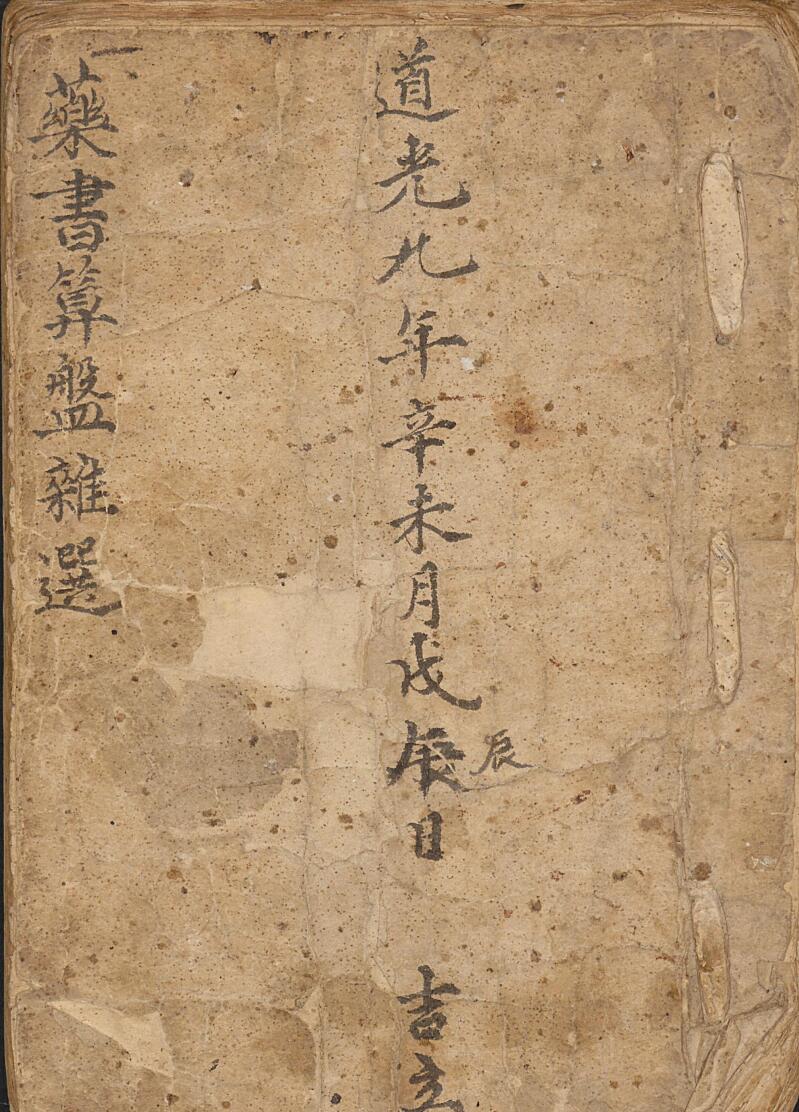 辰
道光九年辛未月戊辰日 吉立
一藥書算盤雜選